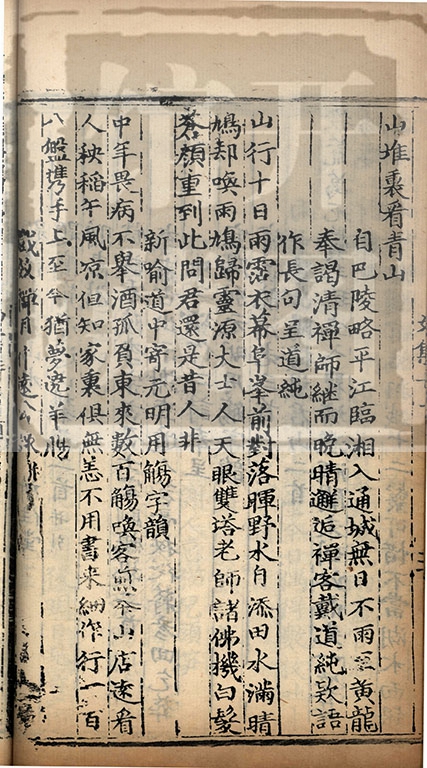 山堆裏看青山
自巴陵略平江臨湘入通城無日不雨至黃龍
奉謁清禪師繼而晚晴邂逅禪客戴道純欵語
作長句呈道純
山行十日雨霑衣幕阜峯前對落暉野水自添田水滿晴
鳩却喚雨鳩歸靈源大士人天眼雙塔老師諸佛機白髮
蒼顏重到此問君還是昔人非
新喻道中寄元明用觴字韻
中年畏病不舉酒孤負東來數百觴喚客煎茶山店遠看
人秧稻午風凉但知家裏俱無恙不用書来細作行一百
八盤携手上至今猶夢遶羊膓